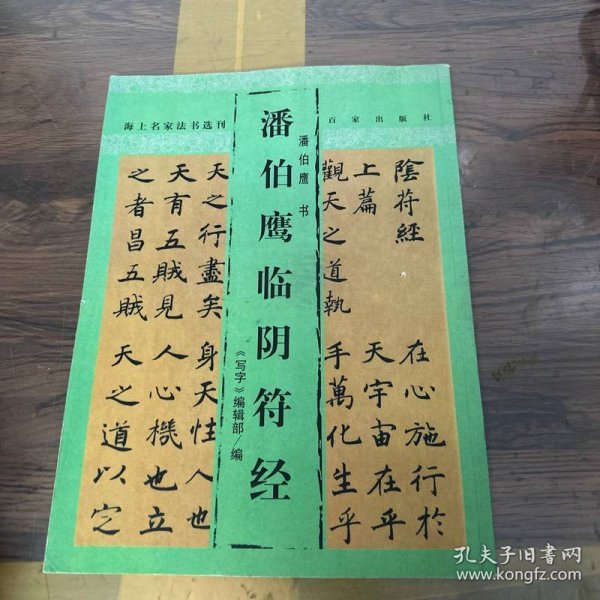 海上名家法书选刊
百家出版社
潘伯鹰临阴符经
潘伯鹰 书
《写字》编辑部 编
陰符經
上篇
觀天之道執
天之行盡矣
天有五賊見
之者昌五賊
在心施行於
天宇宙在乎
手萬化生乎
身天性人也
人心機也立
天之道以定
孔夫子旧书网
www.kongfz.com